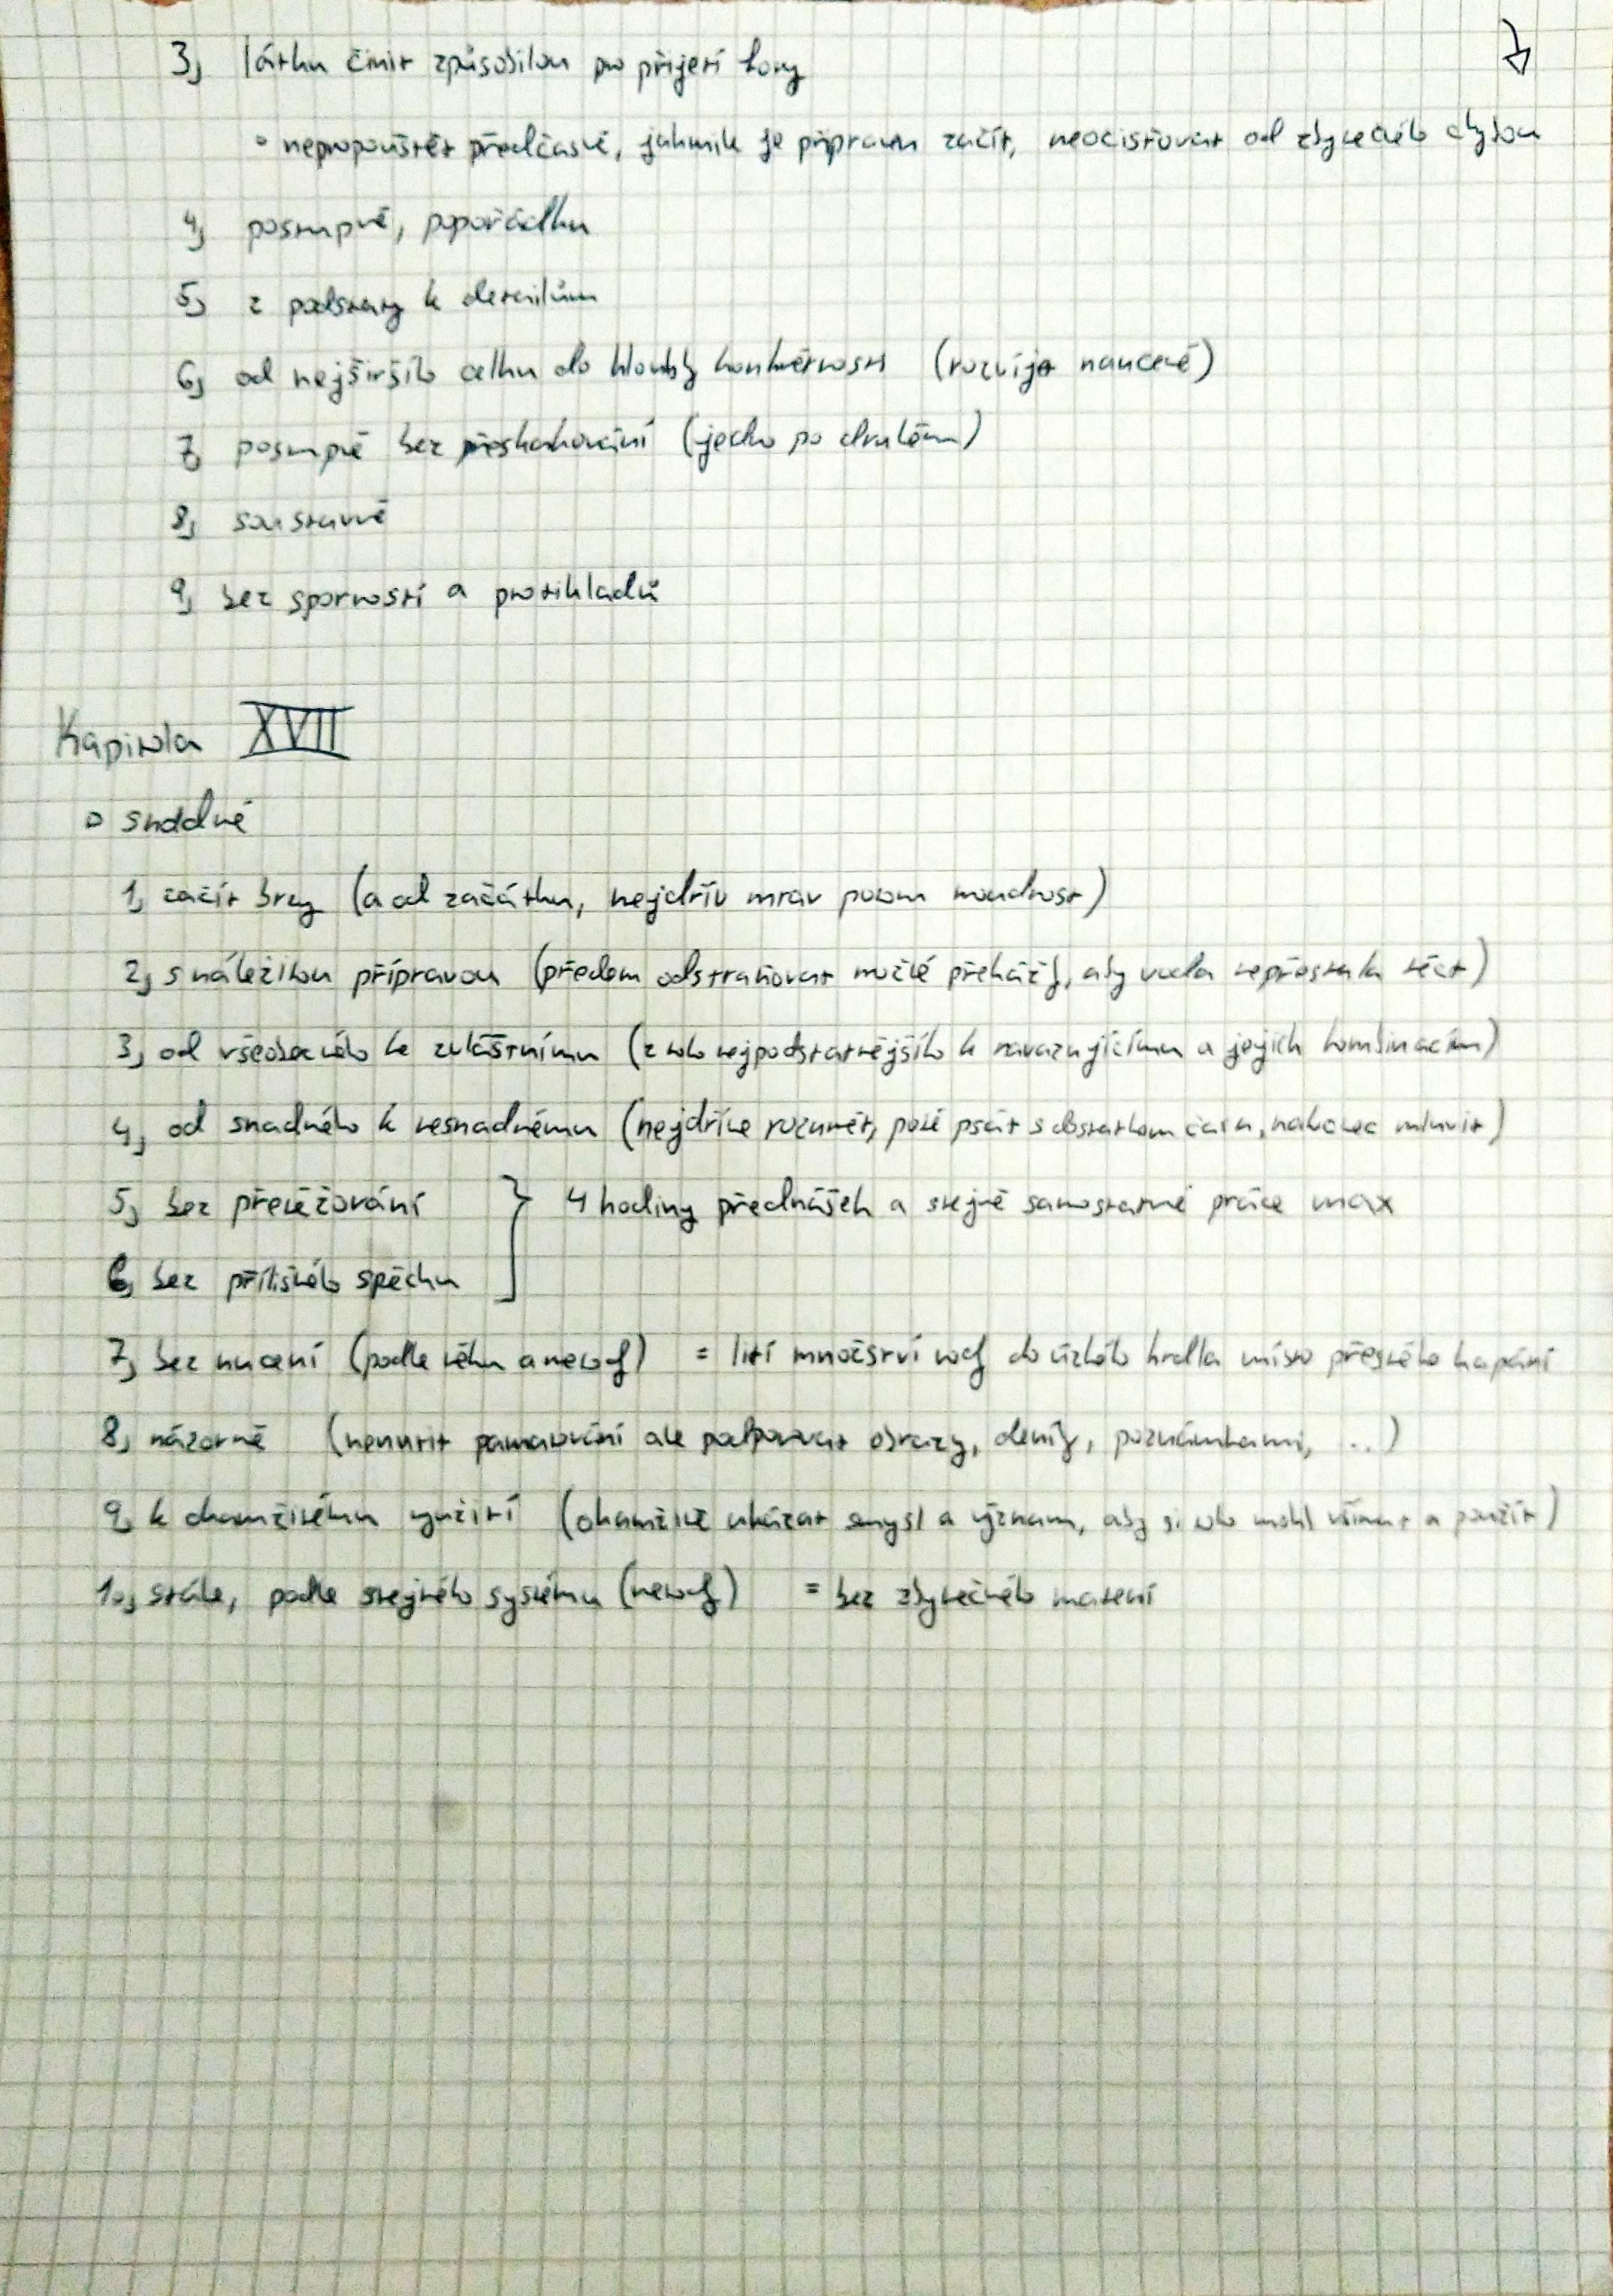 3, látku činit způsobilou pro přijetí formy
• nepropouštět předčasně, jakmile je připraven začít, neočisťovat od zbytečného chybou
4, postupně, popořádku
5, z podstaty k detailům
6, od nejširšího celku do hloubky konkrétnosti (rozvíjet naučené)
7, postupně bez přeskakování (jedno po druhém)
8, soustavně
9, bez sporností a protikladů
Kapitola XVII
▫ snadně
1, začít brzy (a od začátku, nejdřív mrav potom moudrost)
2, s náležitou přípravou (předem odstraňovat možné překážky, aby voda nepřestala téct)
3, od všeobecného ke zvláštnímu (z toho nejpodstatnějšího k navazujícímu a jejich kombinacím)
4, od snadného k nesnadnému (nejdříve rozumět, poté psát s dostatkem času, nakonec mluvit)
5, bez přetěžování } 4 hodiny přednášek a stejně samostatné práce max
6, bez přílišného spěchu
7, bez nucení (podle věku a metody) = lití množství vody do úzkého hrdla místo přesného kapání
8, názorně (nenutit pamatování ale podporovat obrazy, deníky, poznámkami, ...)
9, k okamžitému využití (okamžitě ukázat smysl a význam, aby si toho mohl všímat a použít)
10, stále, podle stejného systému (metody) = bez zbytečného matení